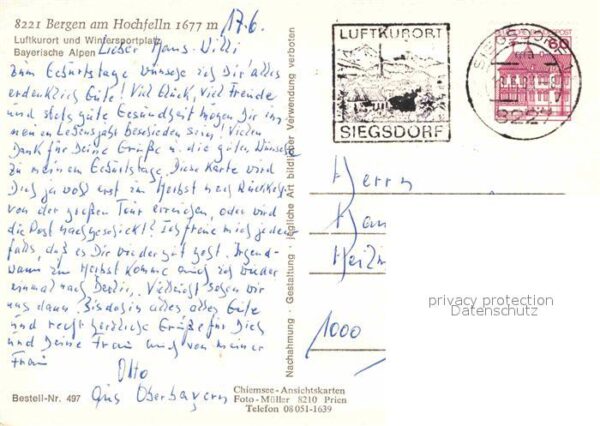 8221 Bergen am Hochfelln 1677 m
17.6.
Luftkurort und Wintersportplatz
Bayerische Alpen
Lieber Hans-Willi
zum Geburtstage wünsche ich Dir alles
erdenklich Gute! Viel Glück, viel Freude
und stets gute Gesundheit mögen Dir im
neuen Lebensjahr beschieden sein! Vielen
Dank für Deine Grüße u. die guten Wünsche
zu meinem Geburtstage. Diese Karte wird
Dich ja wohl erst im Herbst nach Rückkehr
von der großen Tour erreichen, oder wird
die Post nachgeschickt? Ich freue mich jeden
falls, daß es Dir wieder gut geht. Irgend-
wann im Herbst komme auch ich wieder
einmal nach Berlin. Vielleicht sehen wir
uns dann. Bis dahin alles, alles Gute
und recht herzliche Grüße für Dich
und Deine Frau auch von meiner
Frau
Otto
aus Oberbayern
Bestell-Nr. 497
Nachahmung · Gestaltung · jegliche Art bildlicher Verwendung verboten
Chiemsee-Ansichtskarten
Foto-Müller 8210 Prien
Telefon 08051-1639
LUFTKURORT
SIEGSDORF
SIEGSDORF
8227
60
Herrn
1000
privacy protection
Datenschutz